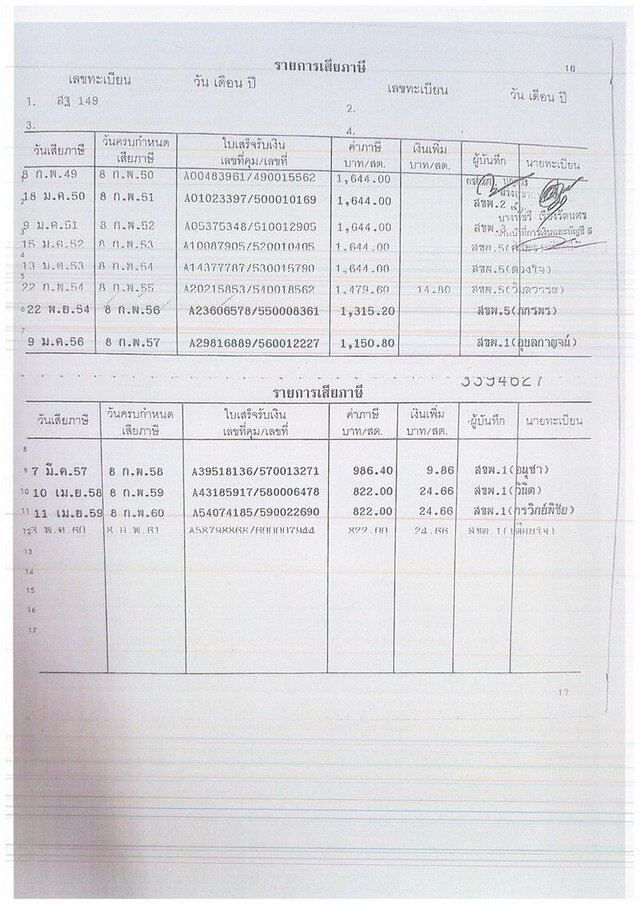 รายการเสียภาษี
16
เลขทะเบียน วัน เดือน ปี เลขทะเบียน วัน เดือน ปี
1. สฐ 149 2.
3. 4.
วันเสียภาษี วันครบกำหนดเสียภาษี ใบเสร็จรับเงิน เลขที่คุม/เลขที่ ค่าภาษี บาท/สต. เงินเพิ่ม บาท/สต. ผู้บันทึก นายทะเบียน
8 ก.พ.49 8 ก.พ.50 A00483961/490015562 1,644.00
18 ม.ค.50 8 ก.พ.51 A01023397/500010169 1,644.00 สขพ.2
9 ม.ค.51 8 ก.พ.52 A05375348/510012905 1,644.00
15 ม.ค.52 8 ก.พ.53 A10087905/520010405 1,644.00 สขพ.5
13 ม.ค.53 8 ก.พ.54 A14377787/530015790 1,644.00 สขพ.5(ดวงใจ)
22 ก.พ.54 8 ก.พ.55 A20215853/540018562 1,479.60 14.80 สขพ.5(วิมลวรรณ)
6 22 พ.ย.54 8 ก.พ.56 A23606578/550008361 1,315.20 สขพ.5(ภทรพร)
7
9 ม.ค.56 8 ก.พ.57 A29816889/560012227 1,150.80 สขพ.1(อุบลกาญจน์)
3394627
รายการเสียภาษี
วันเสียภาษี วันครบกำหนดเสียภาษี ใบเสร็จรับเงิน เลขที่คุม/เลขที่ ค่าภาษี บาท/สต. เงินเพิ่ม บาท/สต. ผู้บันทึก นายทะเบียน
8
9 7 มี.ค.57 8 ก.พ.58 A39518136/570013271 986.40 9.86 สขพ.1(อนุชา)
10 10 เม.ย.58 8 ก.พ.59 A43185917/580006478 822.00 24.66 สขพ.1(วินิต)
11 11 เม.ย.59 8 ก.พ.60 A54074185/590022690 822.00 24.66 สขพ.1(กรวิกย์พิชัย)
12 3 พ.ค.60 8 ก.พ.61 A58798868/600007944 822.00 24.66 สขพ.1
13
14
15
16
17
17